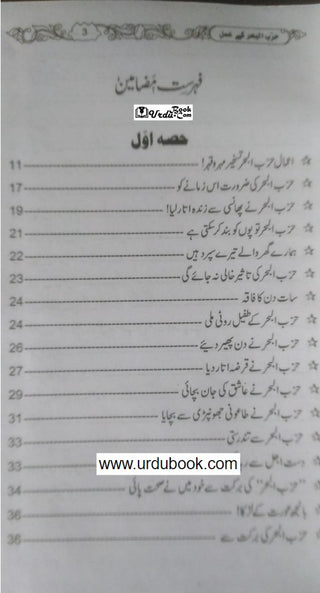 حزب البحر کے عمل
3
فہرست مضامین
Urdu Book .Com
حصہ اوّل
اعمال حزب البحر تسخیر مہر و قہر! 11
حزب البحر کی ضرورت اس زمانے کو 17
حزب البحر نے پھانسی سے زندہ اتار لیا! 19
حزب البحر توپوں کو بند کر سکتی ہے 21
ہمارے گھر والے تیرے سپرد ہیں 22
حزب البحر کی تاثیر خالی نہ جائے گی 23
سات دن کا فاقہ 24
حزب البحر کے طفیل روٹی ملی 24
حزب البحر نے دن پھیر دیئے 26
حزب البحر نے قرضہ اتار دیا 27
حزب البحر نے عاشق کی جان بچائی 29
حزب البحر نے طاعونی جھونپڑی سے بچایا 31
حزب البحر سے تندرستی 33
دست اجل سے 33
www.urdubook.com
"حزب البحر" کی برکت سے خود میں نے صحت پائی 34
بانجھ عورت کے لڑکا! 36
حزب البحر کی برکت سے 36